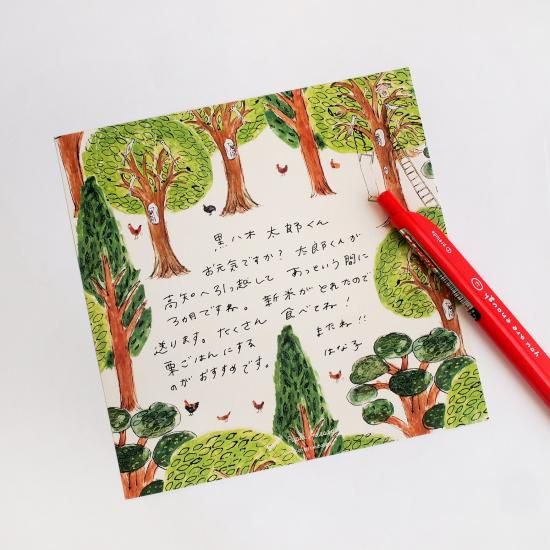 黒八木 太郎くん
お元気ですか? 太郎くんが
高知へ引っ越して あっという間に
3ヵ月ですね。 新米がとれたので
送ります。たくさん 食べてね!
栗ごはんにする
のが おすすめです。
またね!!
はな子
you are enough